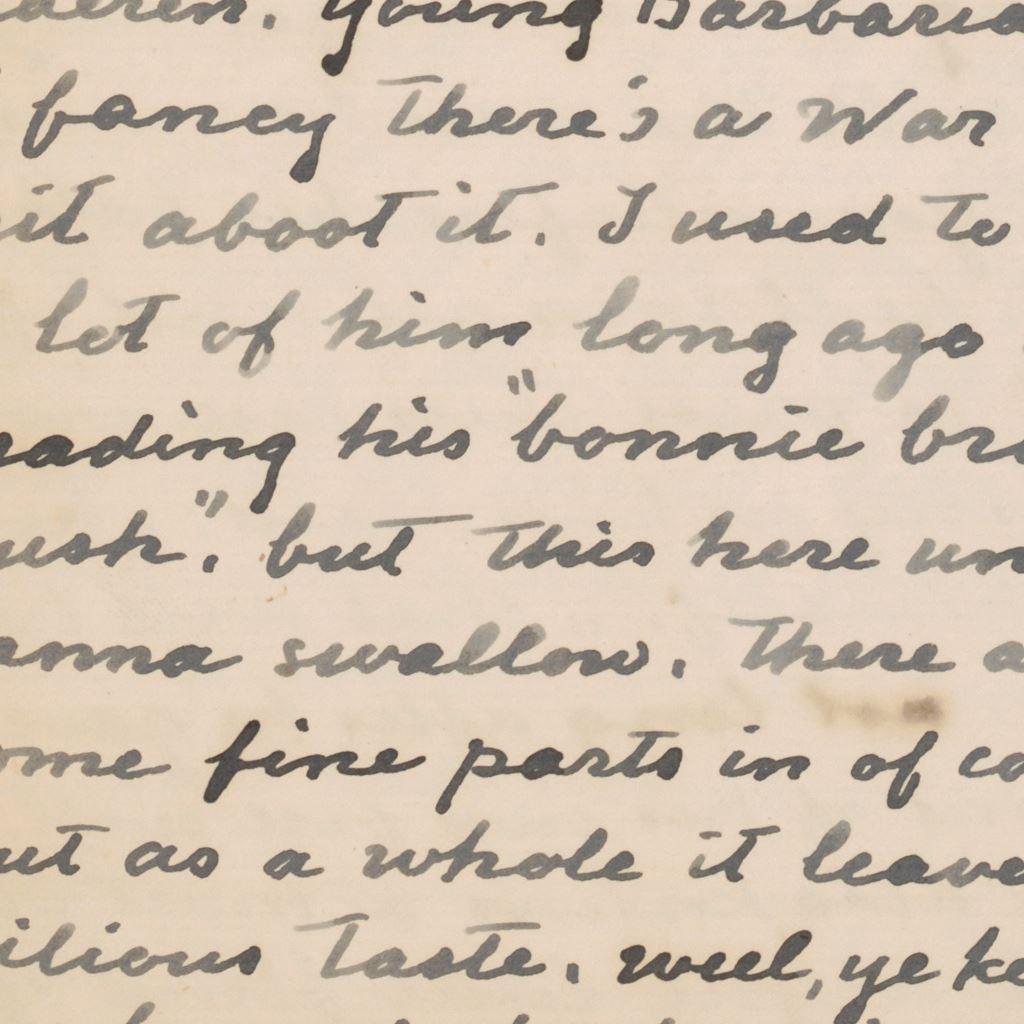 Young Barbaria
fancy There's a War
it aboot it. I used to
lot of him long ago
eading his "bonnie br
ush", but this here un
anna swallow. There a
ome fine parts in of co
ut as a whole it leave
ilious Taste. weel, ye ke